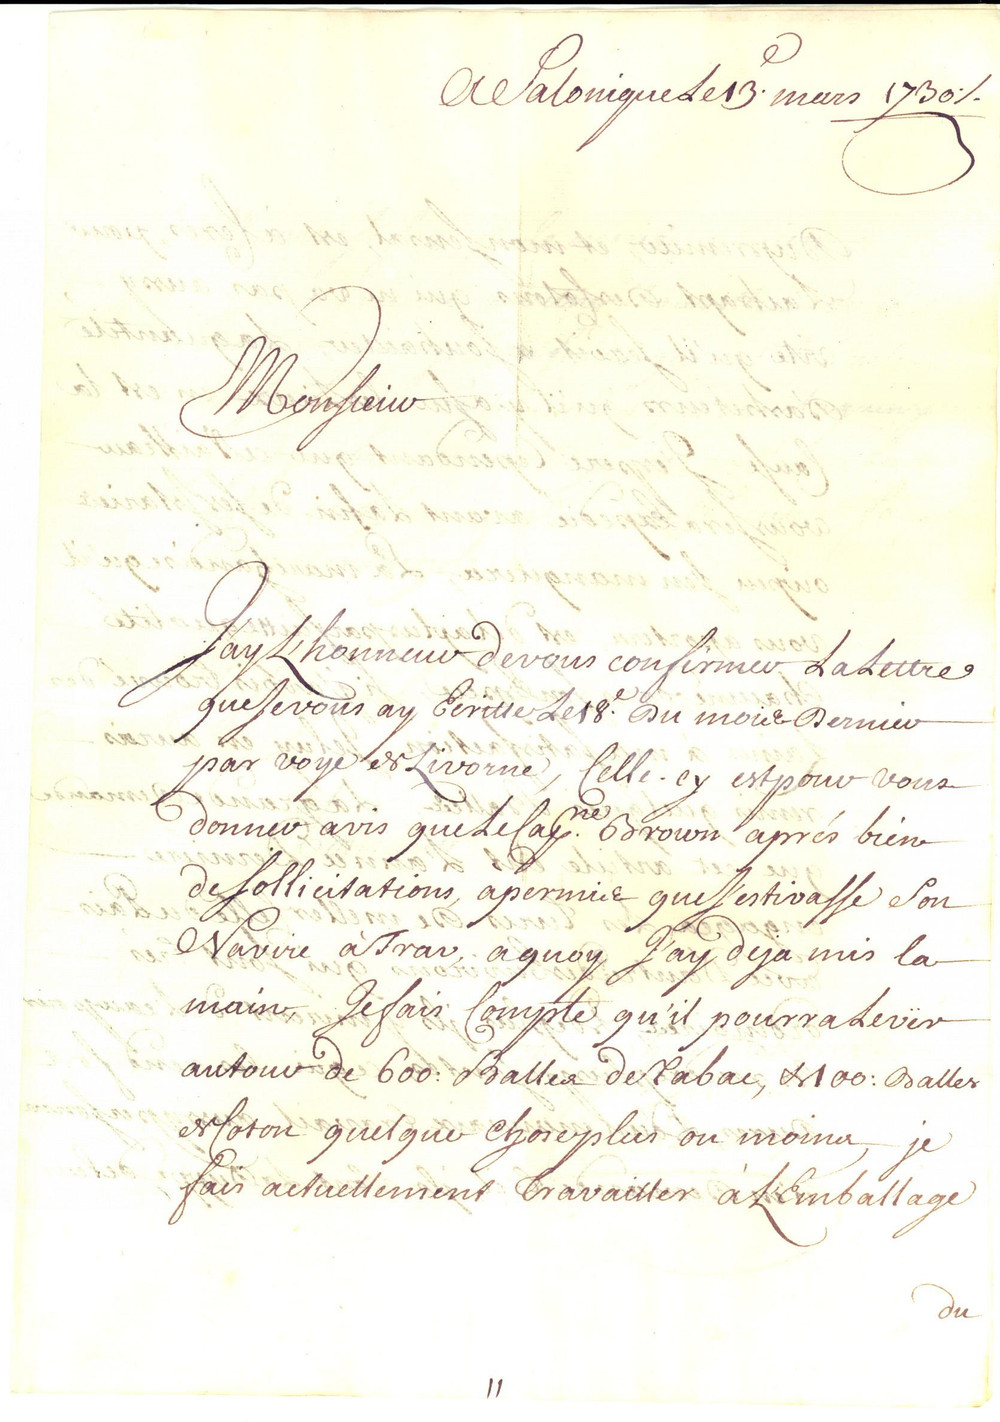 A Salonique Le 13.e mars 1730 ./.
Monsieur
J'ay L'honneur de vous confirmer La Lettre
que Je vous ay Ecritte Le 18.e Du mois Dernier
par voye de Livorne, Celle-cy est pour vous
donner avis que Le Cap.ne Brown aprés bien
de sollicitations, a permis que J'estivasse son
Navire à Trav, a quoy J'ay deja mis la
main, Je fais Compte qu'il pourra Lever
autour de 600: Balles de Tabac, & 100: Balles
de Coton quelque chose plus ou moins, je
fais actuellement Travailler à L'Emballage
du
11